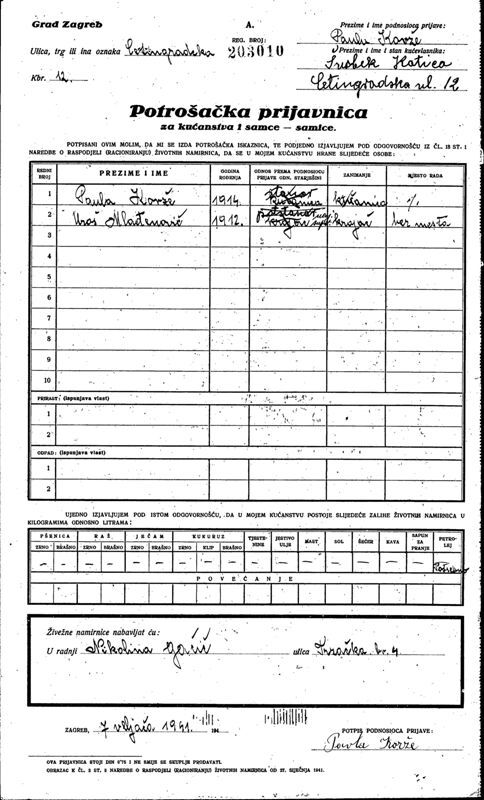 Grad Zagreb
A.
REG. BROJ:
203010
Prezime i ime podnosioca prijave:
Paula Korže
Ulica, trg ili ina oznaka Cetingradska
Prezime i ime i stan kućevlasnika:
Katica
Cetingradska ul. 12
Kbr. 12.
Potrošačka prijavnica
za kućanstva i samce — samice.
POTPISANI OVIM MOLIM, DA MI SE IZDA POTROŠAČKA ISKAZNICA, TE PODJEDNO IZJAVLJUJEM POD ODGOVORNOŠĆU IZ ČL. 18 ST. 1
NAREDBE O RASPODJELI (RACIONIRANJU) ŽIVOTNIH NAMIRNICA, DA SE U MOJEM KUĆANSTVU HRANE SLIJEDEĆE OSOBE:
REDNI BROJ PREZIME I IME GODINA ROĐENJA ODNOS PREMA PODNOSIOCU PRIJAVE ODN. STARJEŠINI ZANIMANJE MJESTO RADA
1 Paula Korže 1914.
2 Uroš Mlađenović 1912. krojač bez mesta
3
4
5
6
7
8
9
10
PRIRAST: (ispunjava vlast)
1
2
ODPAD: (ispunjava vlast)
1
2
UJEDNO IZJAVLJUJEM POD ISTOM ODGOVORNOŠĆU, DA U MOJEM KUĆANSTVU POSTOJE SLIJEDEĆE ZALIHE ŽIVOTNIH NAMIRNICA U
KILOGRAMIMA ODNOSNO LITRAMA:
PŠENICA RAŽ JEČAM KUKURUZ TJESTENINE JESTIVO ULJE MAST SOL ŠEĆER KAVA SAPUN ZA PRANJE PETROLEJ
ZRNO BRAŠNO ZRNO BRAŠNO ZRNO BRAŠNO ZRNO KLIP BRAŠNO
— — — — — — — — — — — — — — — —
POVEĆANJE
Živežne namirnice nabavljat ću:
U radnji Nikolina ulica br. 4
ZAGREB, 7 veljača 1941. 194
POTPIS PODNOSIOCA PRIJAVE:
Paula Korže
OVA PRIJAVNICA STOJI DIN 0'75 I NE SMIJE SE SKUPLJE PRODAVATI.
OBRAZAC K ČL. 2 ST. 2 NAREDBE O RASPODJELI (RACIONIRANJU) ŽIVOTNIH NAMIRNICA OD 27. SIJEČNJA 1941.